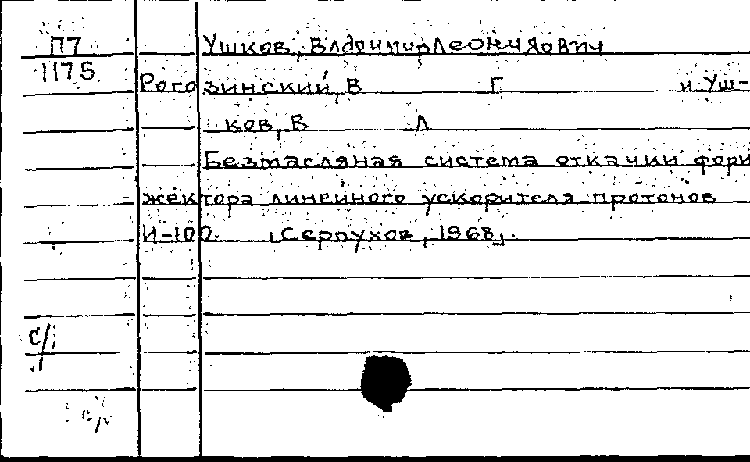 П7
1175
Ушков, Владимир Леонидович
Рогозинский, В Г и Уш-
ков, В Л
Безмасляная система откачки фори
жектора линейного ускорителя протонов
И-100. [Серпухов, 1968].